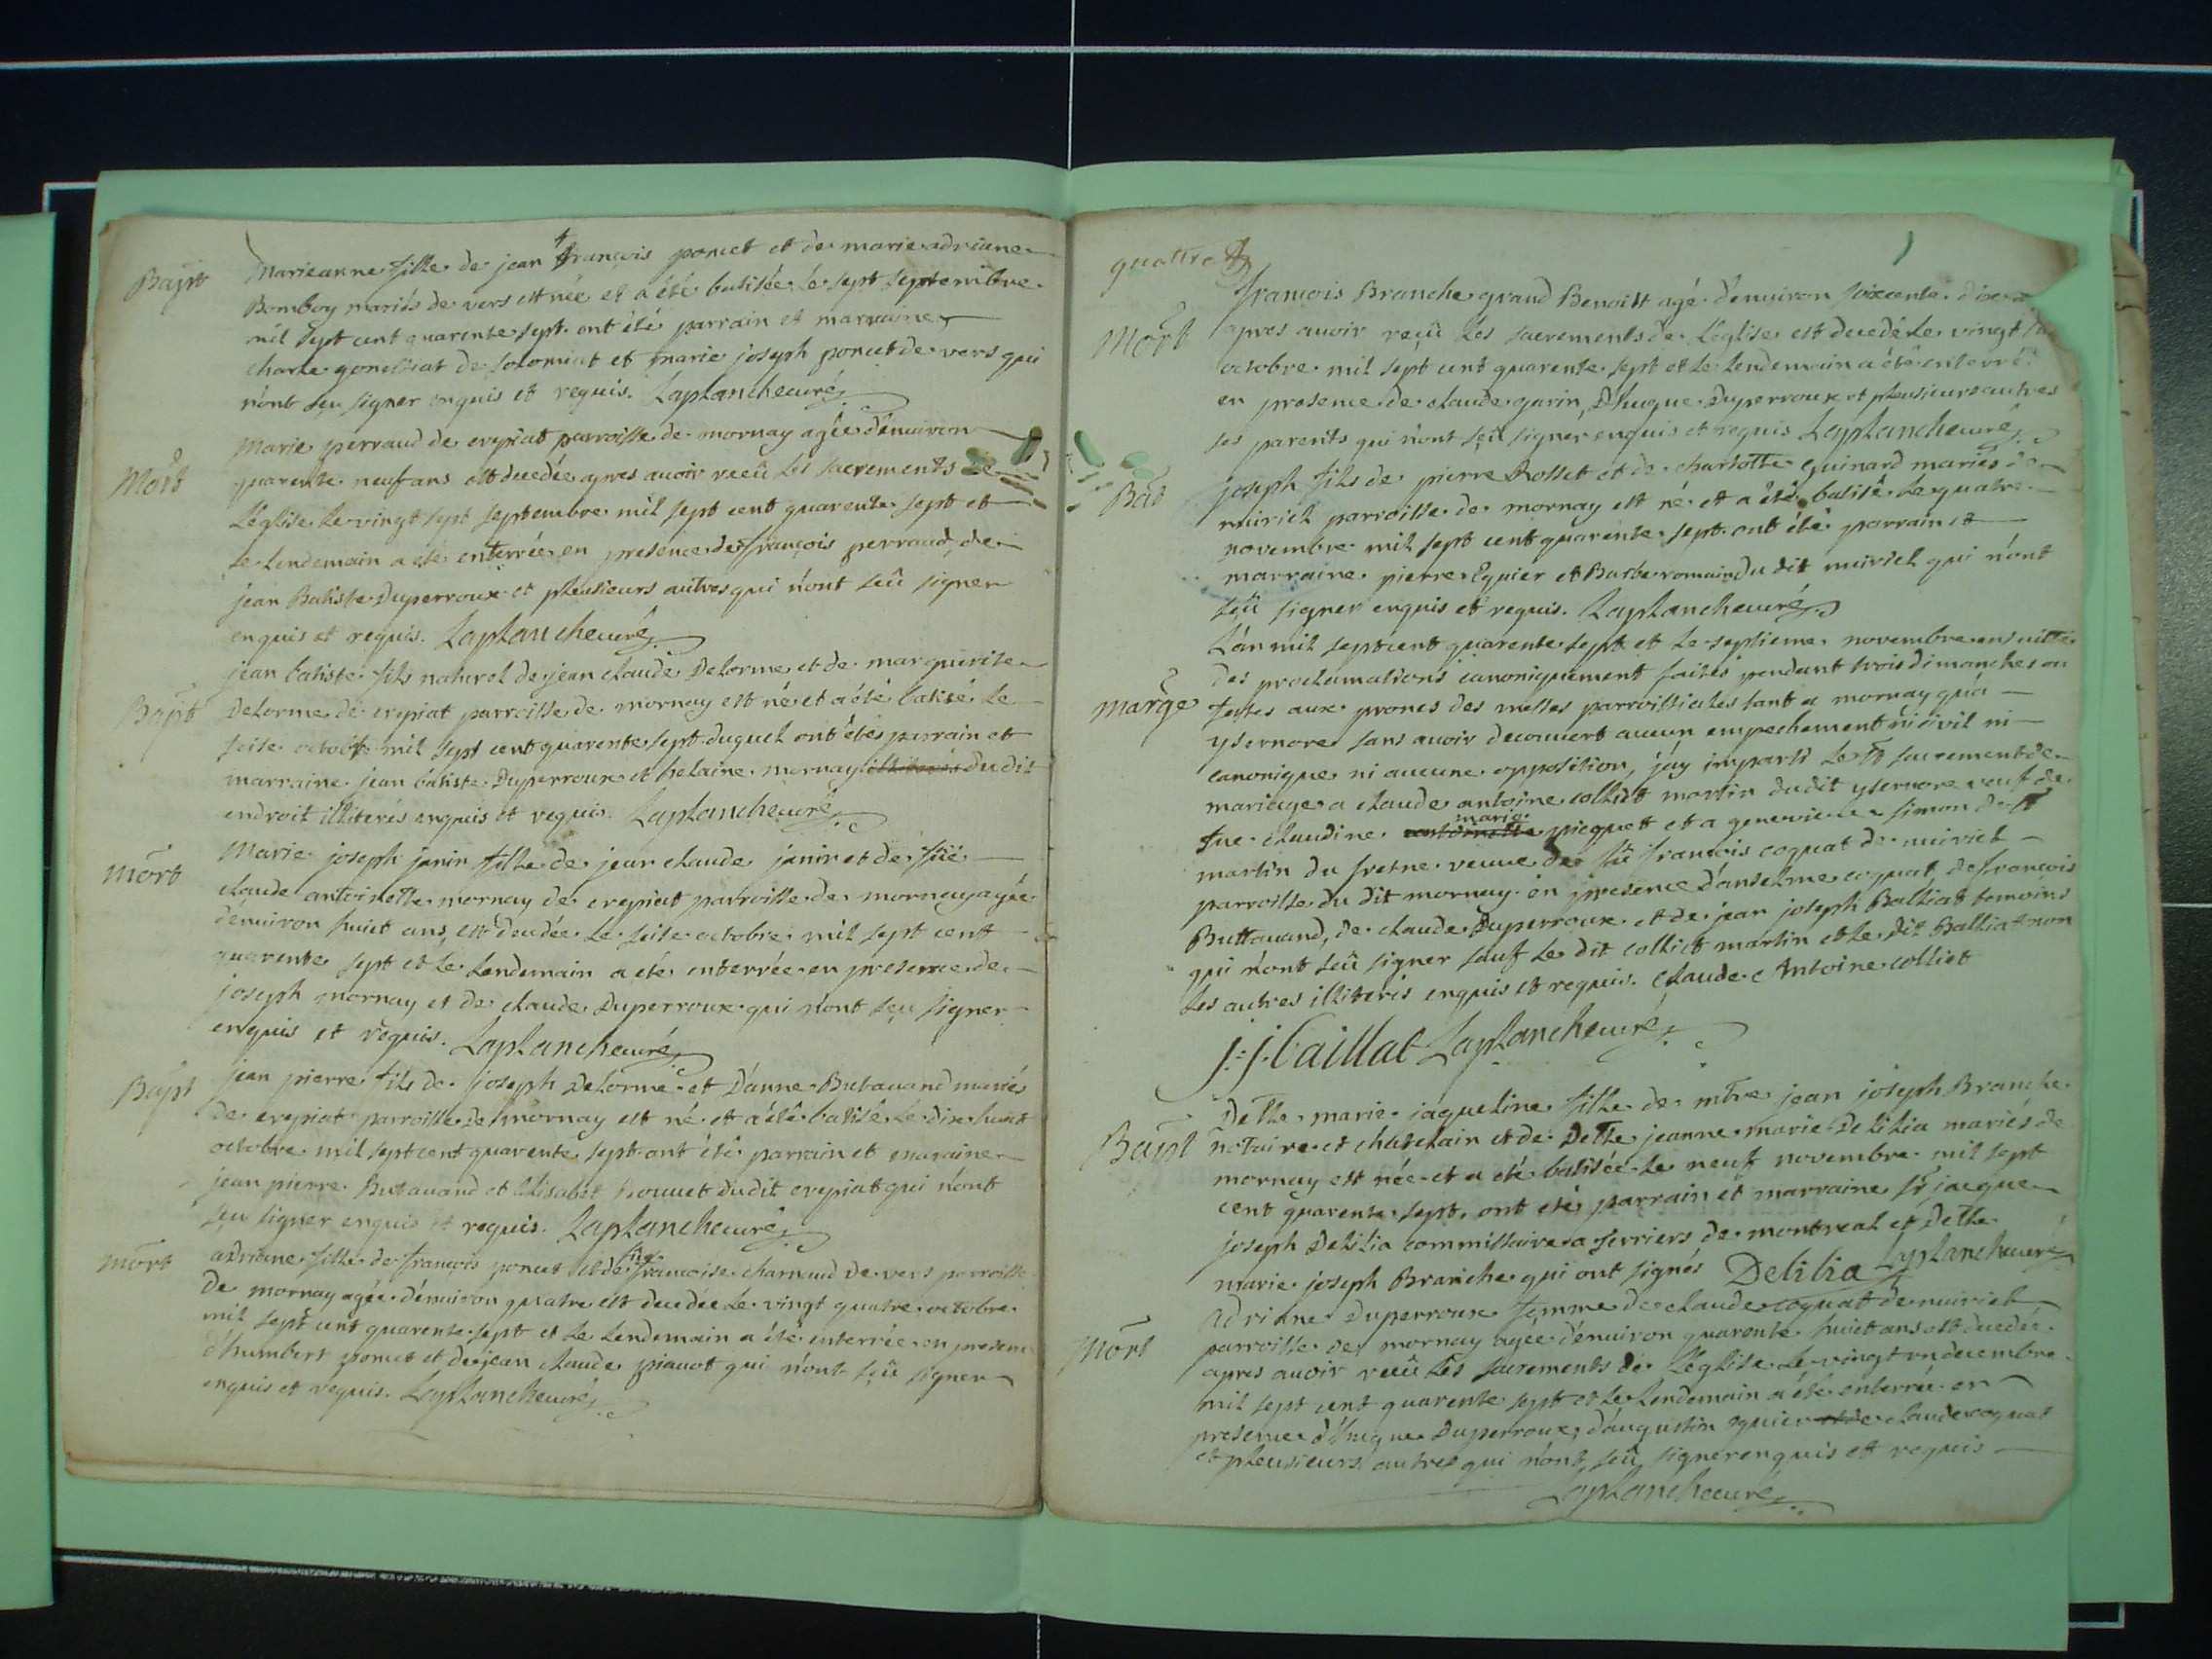 Bapt
Marieanne fille de jean françois poncet et de marie adriane
Bomboy mariés de vers est née et a été batisée le sept septembre
mil sept cent quarente sept. ont été parrain et marraine
charle gonessiat de solomiat et marie joseph poncet de vers qui
n'ont seu signer enquis et requis. Laplanche curé
Mort
Marie perraud de crepiat parroisse de mornay agée d'enuiron
quarente neuf ans est decedée apres auoir receû les sacrements de
L'église le vingt sept septembre mil sept cent quarente sept et
le lendemain a été enterrée en presence de françois perraud, de
jean Batiste Duperroux et pleusieurs autres qui n'ont seû signer
enquis et requis. Laplanche curé
Bapt
jean batiste fils naturel de jean claude Delorme et de marguerite
Delorme de crepiat parroisse de mornay est né et a été batisé le
seise octobre mil sept cent quarente sept. duquel ont étés parrain et
marraine jean batiste Duperroux et helaine mornay illiterés dudit
endroit illiterés enquis et requis. Laplanche curé
mort
Marie joseph janin fille de jean claude janin et de füe
claude antoinette mornay de crepiat parroisse de mornay agée
d'enuiron huict ans, est decedée le seise octobre mil sept cent
quarente sept et le lendemain a été enterrée en presence de
joseph mornay et de claude Duperroux qui n'ont seu signer
enquis et requis. Laplanche curé
Bapt
jean pierre fils de joseph Delorme et D'anne Butauand mariés
de crepiat parroisse de mornay est né et a été batisé le dix huict
octobre mil sept cent quarente sept. ont été parrain et maraine
jean pierre Butauand et Elisabet Bouuet dudit crepiat qui n'ont
seu signer enquis et requis. Laplanche curé
mort
adriane fille de françois poncet et de füe françoise charnaud de vers parroisse
De mornay agée d'enuiron quatre est decedée le vingt quatre octobre
mil sept cent quarente sept et le lendemain a été enterrée en presen
d'humbert poncet et de jean claude piauot qui n'ont seû signer
enquis et requis. Laplanche curé
quattre
Mort
françois Branche grand Benoist agé d'enuiron soixcente dix
apres auoir reçû les sacrements de L'église est decedé le vingt
octobre mil sept cent quarente sept et le lendemain a été enterré
en presence de claude garin, D'hugue Duperroux et pleusieurs autres
ses parents qui n'ont seû signer enquis et requis Laplanche curé
Bat
joseph fils de pierre Rosset et de charlotte Eguinard mariés de
nuiriel parroisse de mornay est né et a été batisé le quatre
novembre mil sept cent quarente sept. ont été parrain et
marraine pierre Eguier et Barbe romain du dit nuiriel qui n'ont
seû signer enquis et requis. Laplanche curé
marge
L'an mil sept cent quarente sept et le septieme novembre ensuitte
des proclamations canoniquement faites pendant trois dimanches ou
festes aux prones des messes parroissiales tant a mornay qu'a
ysernore sans auoir decouuert aucun empechement ni ciuil ni
canonique ni aucune opposition, j'ay imparti le st sacrement de
mariage a claude antoine colliet martin dudit ysernore veuf de
fue claudine marie picquet et a genevieue simon dest
martin du fresne veuue de fû françois coquat de nuiriel
parroisse du dit mornay en presence d'anselme coquat, de françois
Buttauand, de claude Duperroux et de jean joseph Balliat temoins
qui n'ont seû signer sauf le dit colliet martin et le dit Balliat non
les autres illiterés enquis et requis. Claude Antoine colliet
j: j. Caillat Laplanche curé
Bapt
Delle marie jaqueline fille de mtre jean joseph Branche
notaire et chatelain et de Delle jeanne marie Delilia mariés de
mornay est née et a été batisée le neuf novembre mil sept
cent quarente sept. ont été parrain et marraine sr jacque
joseph Delilia commissaire a terriers de montreal et Delle
marie joseph Branche qui ont signés Delilia Laplanche curé
Mort
Adriane Duperroux femme de claude coquat de nuiriel
parroisse de mornay agée d'enuiron quarente huict ans est decedée
apres auoir receû les sacrements de L'église le vingt un decembre
mil sept cent quarente sept et le lendemain a été enterrée en
presence d'hugue Duperroux, d'augustin Eguier et de claude coquat
et pleusieurs autres qui n'ont seû signer enquis et requis
Laplanche curé